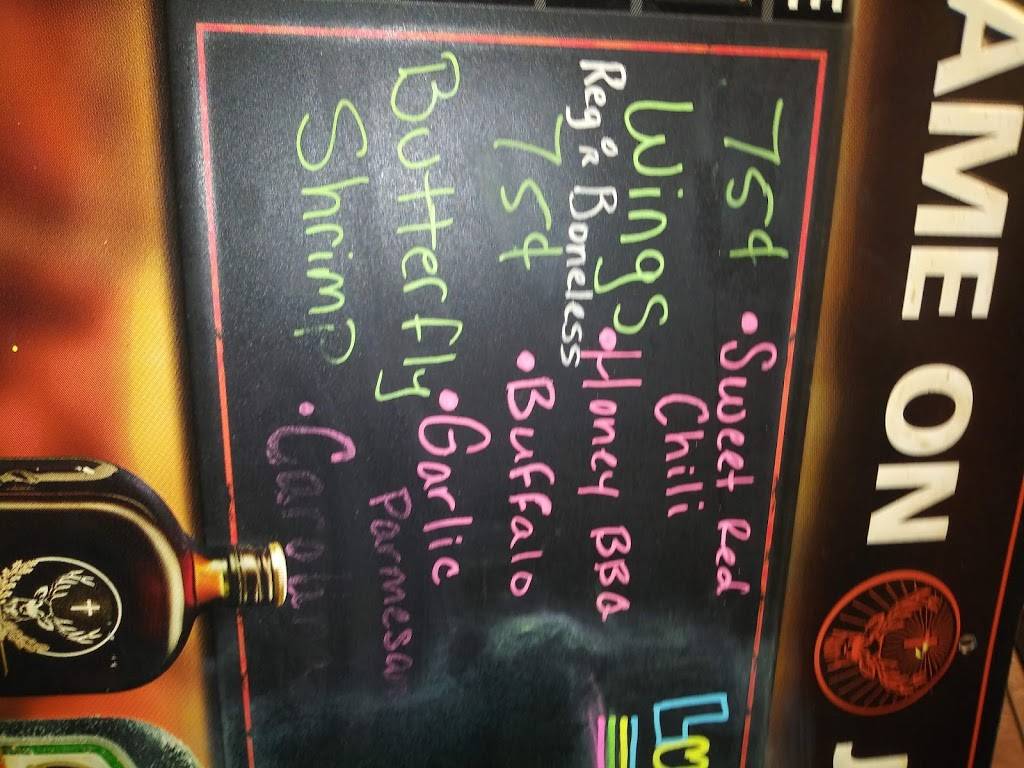 AME ON
7s4
Wings
Reg OR Boneless
7s4
Butterfly
Shrimp
• Sweet Red
Chili
• Honey BBQ
• Buffalo
• Garlic
Parmesan